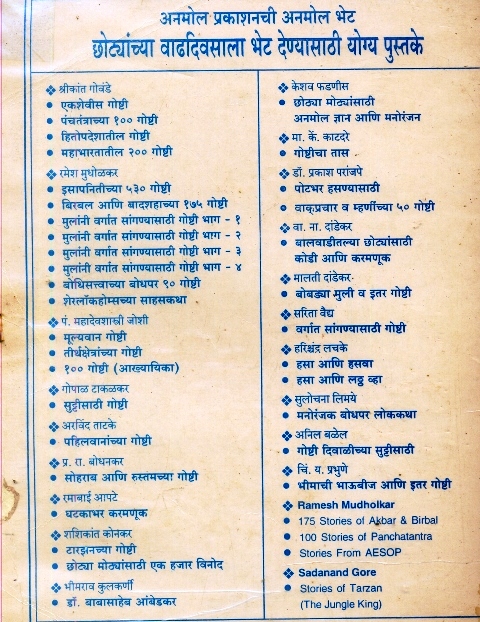 अनमोल प्रकाशनची अनमोल भेट
छोट्यांच्या वाढदिवसाला भेट देण्यासाठी योग्य पुस्तके
❖ श्रीकांत गोवंडे
● एकशेवीस गोष्टी
● पंचतंत्राच्या १०० गोष्टी
● हितोपदेशातील गोष्टी
● महाभारतातील २०० गोष्टी
❖ रमेश मुधोळकर
● इसापनितीच्या ५३० गोष्टी
● बिरबल आणि बादशहाच्या १७५ गोष्टी
● मुलांनी वर्गात सांगण्यासाठी गोष्टी भाग - १
● मुलांनी वर्गात सांगण्यासाठी गोष्टी भाग - २
● मुलांनी वर्गात सांगण्यासाठी गोष्टी भाग - ३
● मुलांनी वर्गात सांगण्यासाठी गोष्टी भाग - ४
● बोधिसत्त्वाच्या बोधपर ९० गोष्टी
● शेरलॉकहोम्सच्या साहसकथा
❖ पं. महादेवशास्त्री जोशी
● मूल्यवान गोष्टी
● तीर्थक्षेत्रांच्या गोष्टी
● १०० गोष्टी (आख्यायिका)
❖ गोपाळ टाकळकर
● सुट्टीसाठी गोष्टी
❖ अरविंद ताटके
● पहिलवानांच्या गोष्टी
❖ प्र. रा. बोधनकर
● सोहराब आणि रुस्तमच्या गोष्टी
❖ रमाबाई आपटे
● घटकाभर करमणूक
❖ शशिकांत कोनकर
● टारझनच्या गोष्टी
● छोट्या मोठ्यांसाठी एक हजार विनोद
❖ भीमराव कुलकर्णी
● डॉ. बाबासाहेब आंबेडकर
❖ केशव फडणीस
● छोट्या मोठ्यांसाठी
अनमोल ज्ञान आणि मनोरंजन
❖ मा. कें. काटदरे
● गोष्टीचा तास
❖ डॉ. प्रकाश परांजपे
● पोटभर हसण्यासाठी
● वाक्प्रचार व म्हणींच्या ५० गोष्टी
❖ वा. ना. दांडेकर
● बालवाडीतल्या छोट्यांसाठी
कोडी आणि करमणूक
❖ मालती दांडेकर
● बोबड्या मुली व इतर गोष्टी
❖ सरिता वैद्य
● वर्गात सांगण्यासाठी गोष्टी
❖ हरिश्चंद्र लचके
● हसा आणि हसवा
● हसा आणि लठ्ठ व्हा
❖ सुलोचना लिमये
● मनोरंजक बोधपर लोककथा
❖ अनिल बळेल
● गोष्टी दिवाळीच्या सुट्टीसाठी
❖ चिं. य. प्रभुणे
● भीमाची भाऊबीज आणि इतर गोष्टी
❖ Ramesh Mudholkar
● 175 Stories of Akbar & Birbal
● 100 Stories of Panchatantra
● Stories From AESOP
❖ Sadanand Gore
● Stories of Tarzan
(The Jungle King)